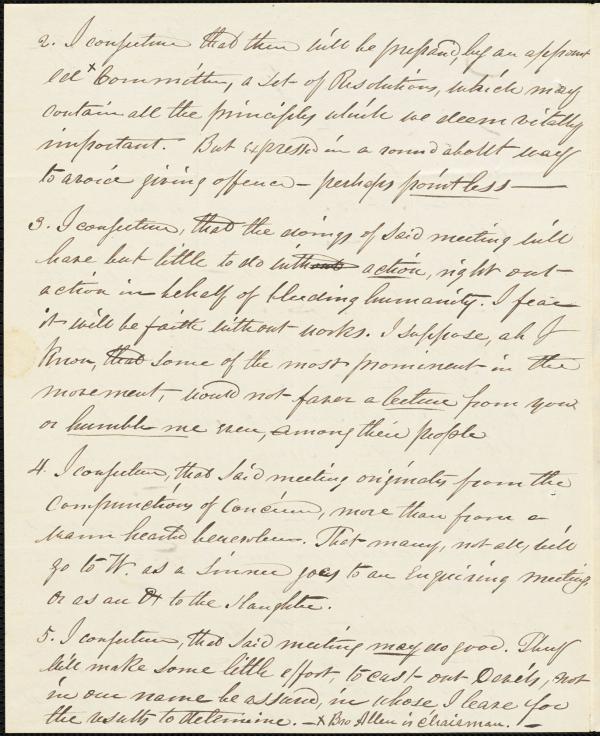 2. I conjecture that there will be prepared, by an appoint
ed x Committee, a Set of Resolutions, which may
contain all the principles which we deem vitally
important. But expressed in a round about way
to avoid giving offence – perhaps pointless —
3. I conjecture, that the doings of Said meeting will
have but little to do with action, right out
action in behalf of bleeding humanity. I fear
it will be faith without works. I suppose, ah I
Know, that some of the most prominent in the
movement, would not favor a lecture from you
or humble me even, among their people
4. I conjecture, that Said meeting originates from the
Compunctions of Concience, more than from a
warm hearted benevolence. That many, not all, will
go to W. as a Sinner goes to an Enquiring meeting,
or as an Ox to the Slaughter.
5. I conjecture, that Said meeting may do good. They
will make some little effort, to cast out Devils, not
in our name be assured, in whose I leave you
the results to determine. – x Bro Allen is Chairman. –